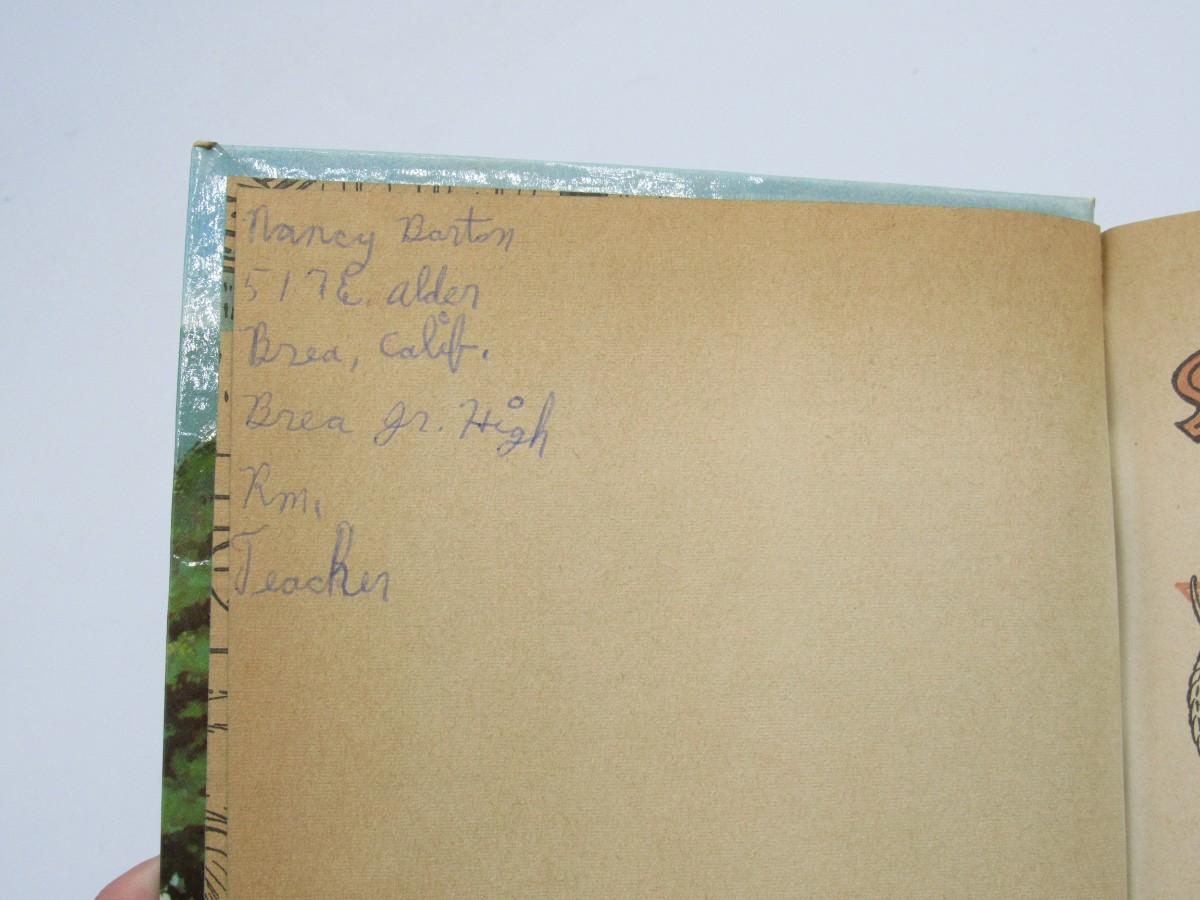 Nancy Barton
517 E. Alder
Brea, Calif.
Brea Jr. High
Rm.
Teacher